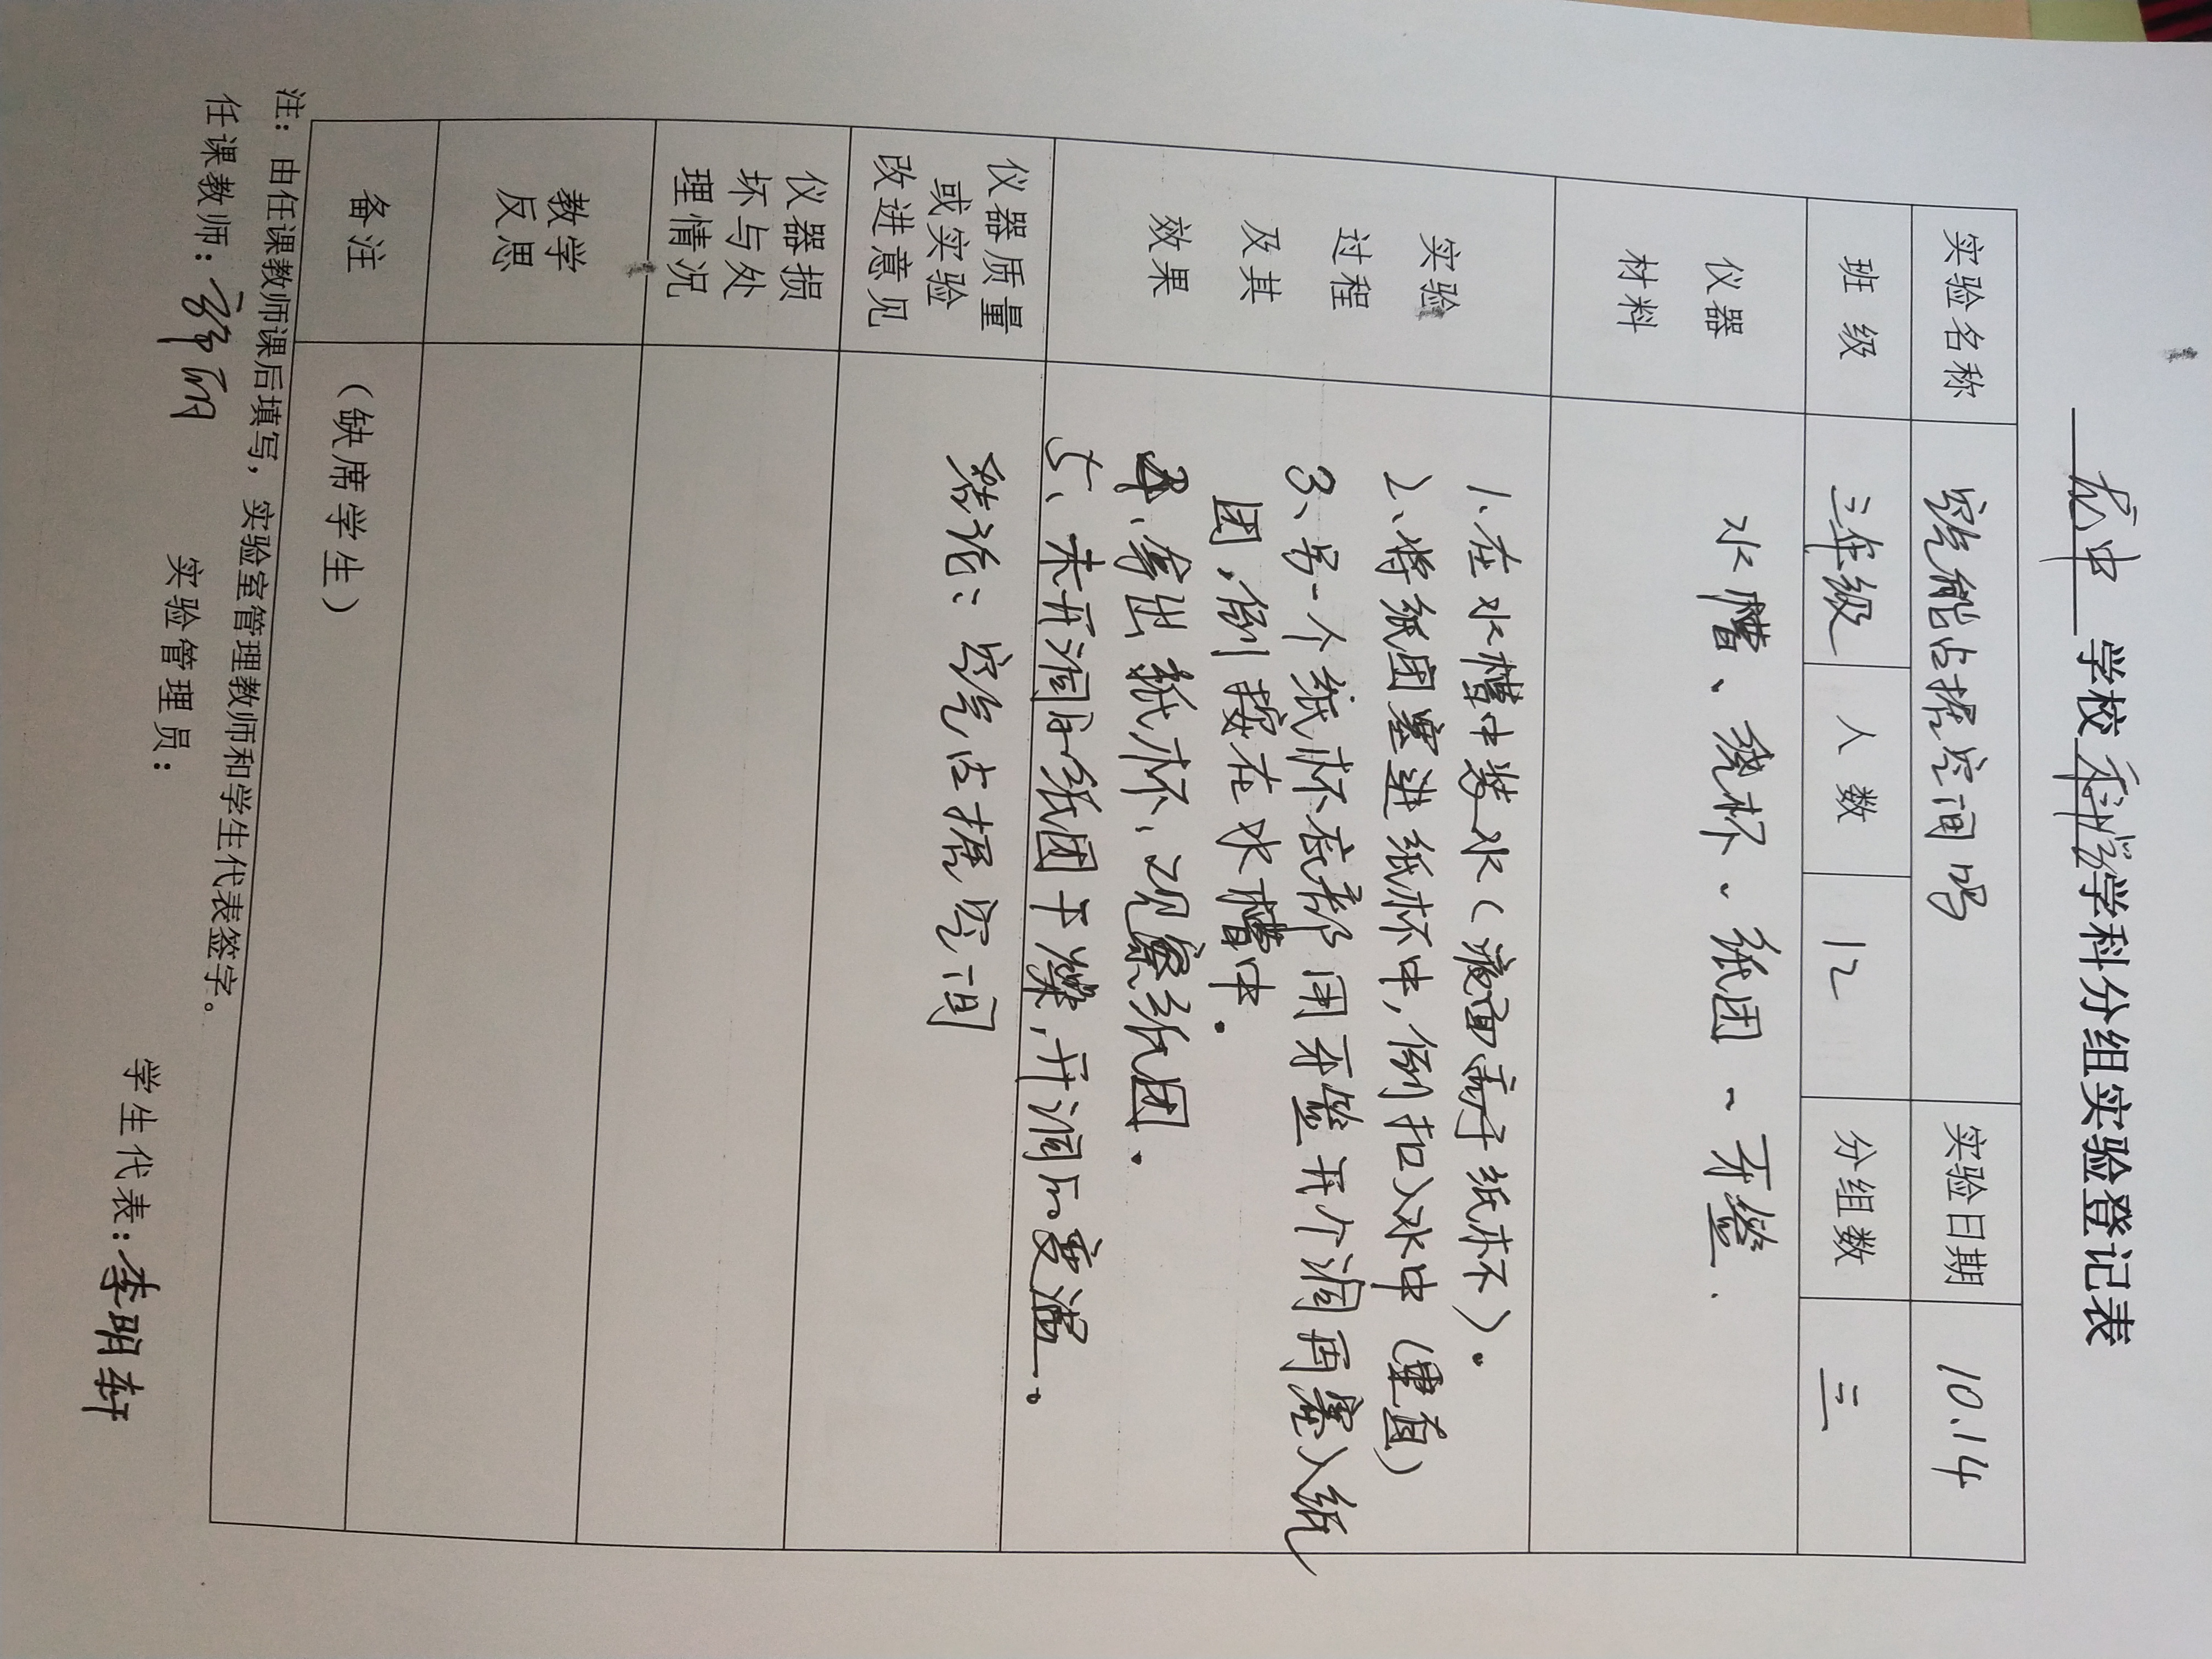 龙中 学校 科学 学科分组实验登记表
实验名称 空气能占据空间吗 实验日期 10.14
班 级 三年级 人 数 12 分组数 三
仪器
材料
水槽、烧杯、纸团、牙签.
实验
过程
及其
效果
1、在水槽中装水(液面高于纸杯)。
2、将纸团塞进纸杯中,倒扣入水中(垂直)
3、另一个纸杯底部用牙签开个洞再塞入纸
团,倒按在水槽中.
4、拿出纸杯,观察纸团.
5、未开洞的纸团干燥,开洞的变湿。
仪器质量
或实验
改进意见
结论:空气占据空间
仪器损
坏与处
理情况
教学
反思
备注 (缺席学生)
注:由任课教师课后填写,实验室管理教师和学生代表签字。
任课教师: 实验管理员: 学生代表:李明轩